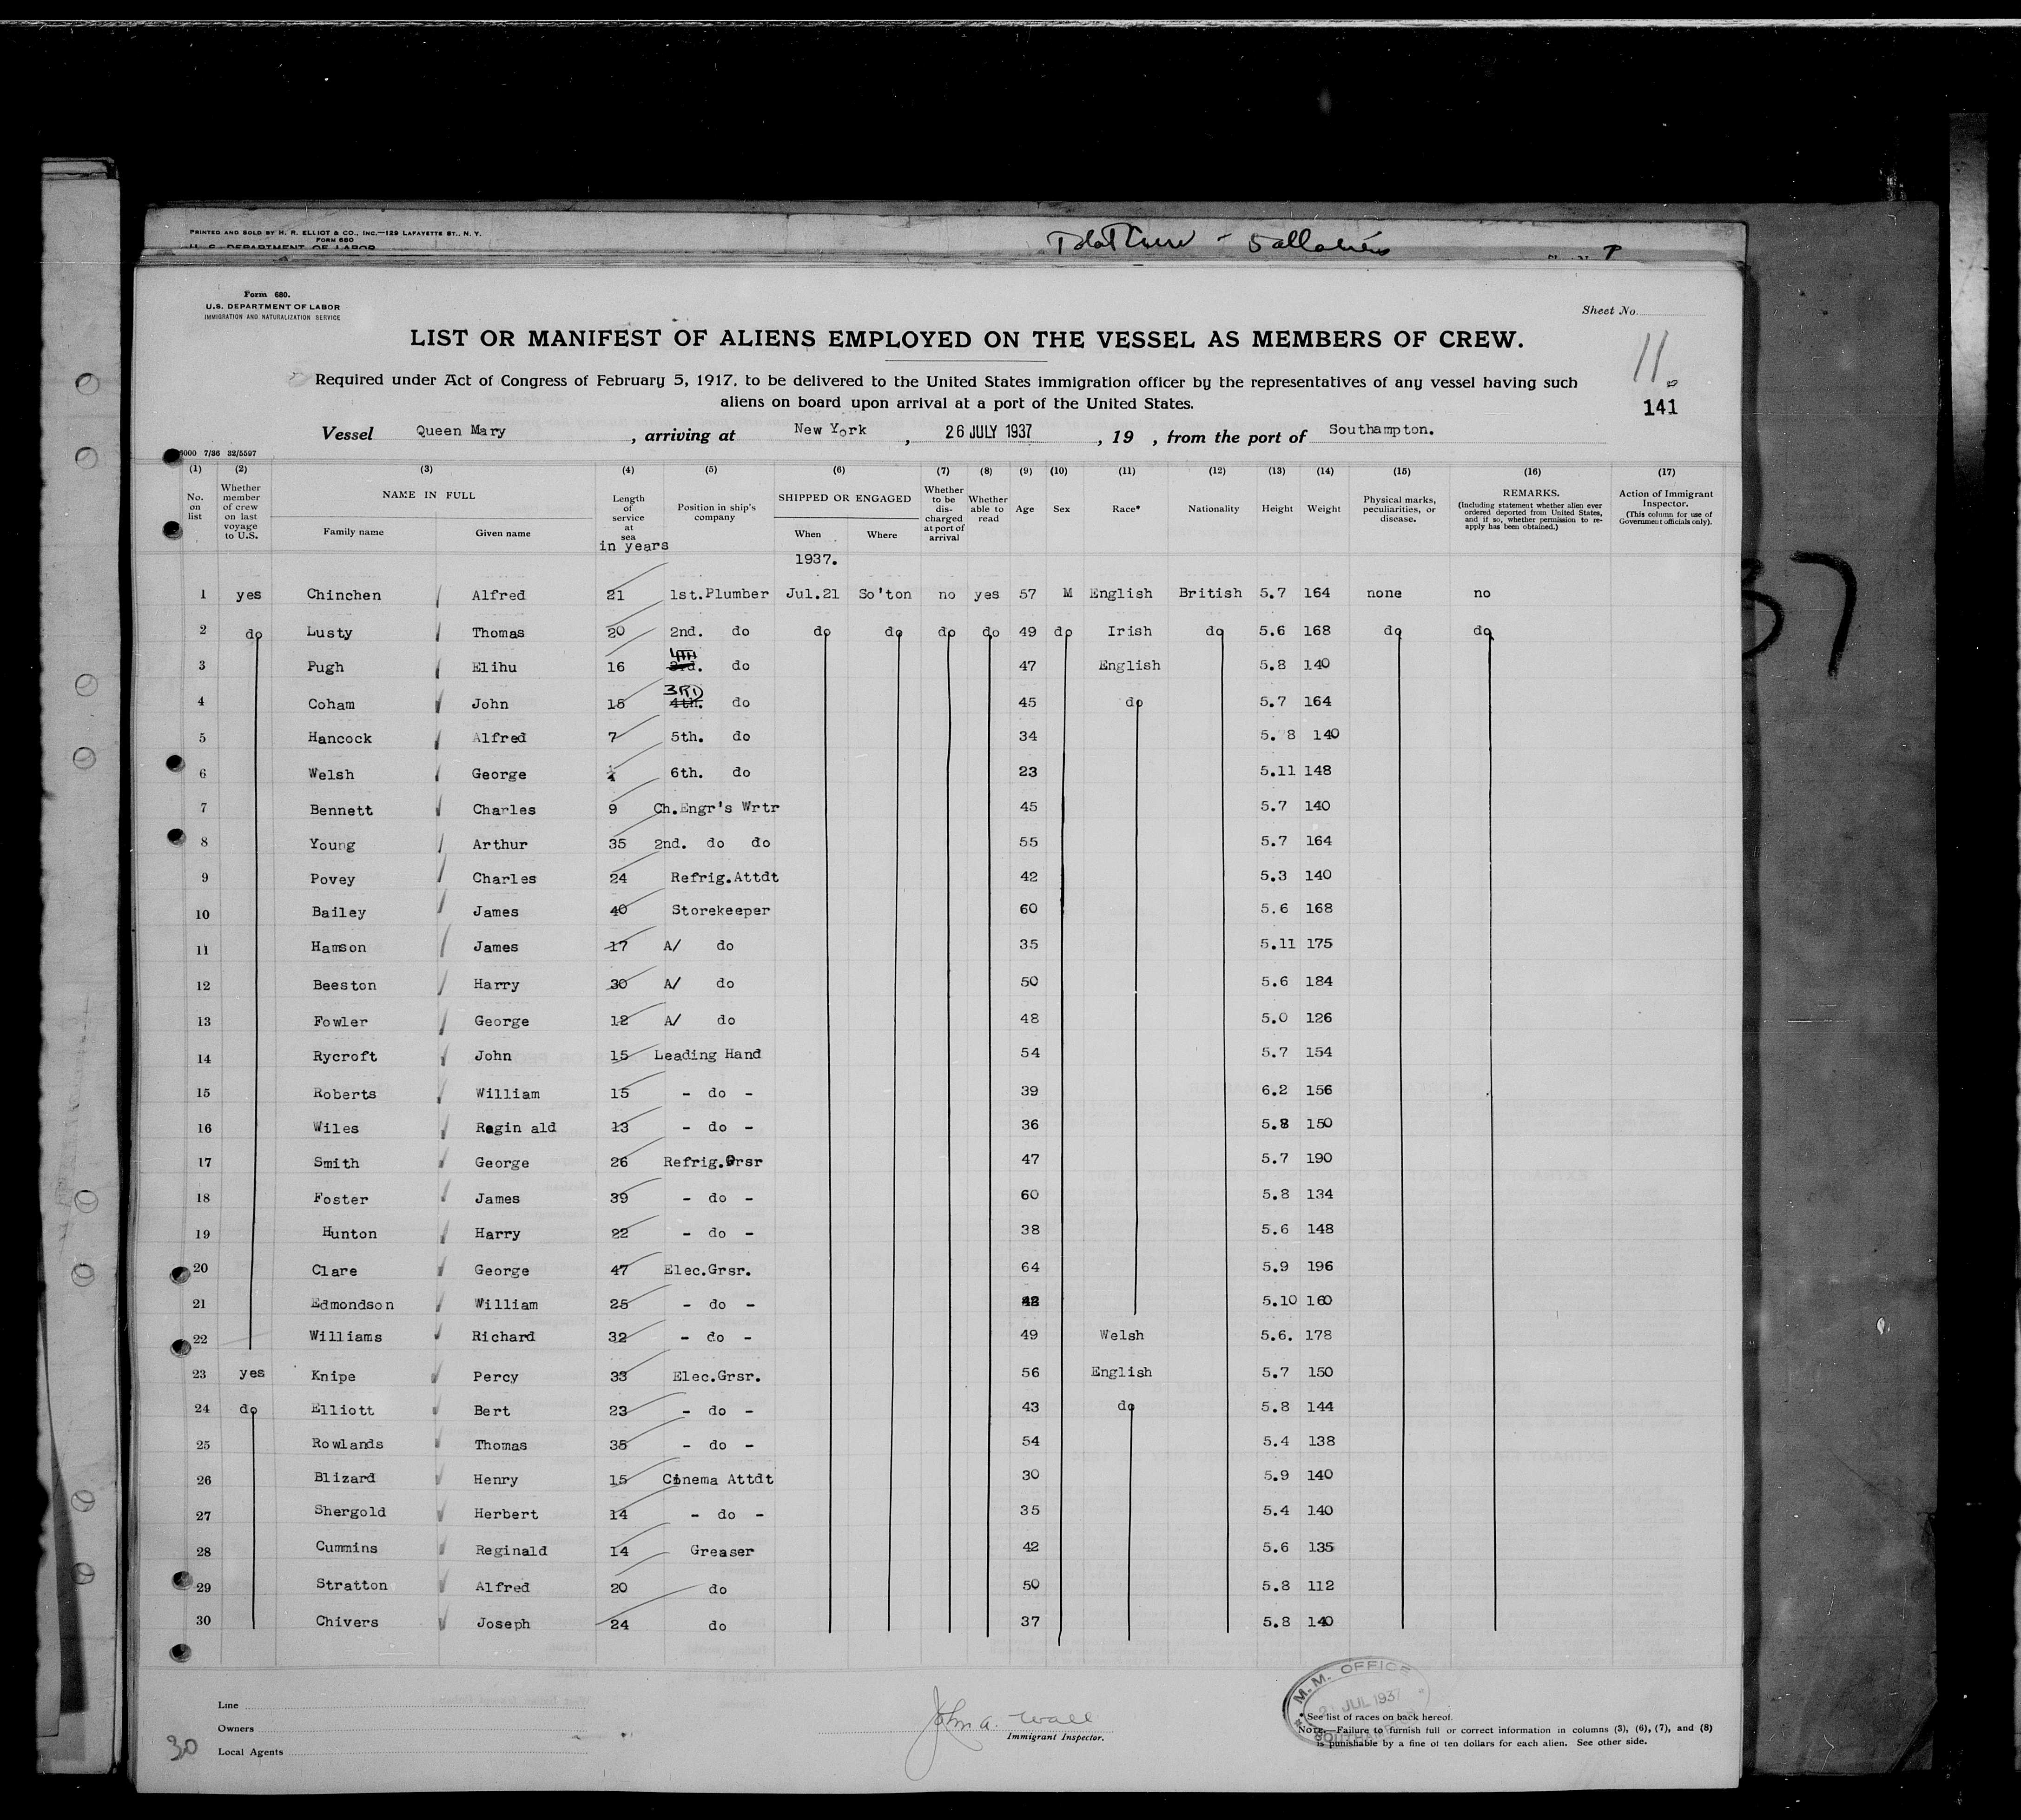 PRINTED AND SOLD BY H. R. ELLIOT & CO., INC.—129 LAFAYETTE ST., N. Y.
FORM 680
U. S. DEPARTMENT OF LABOR
Form 680.
U.S. DEPARTMENT OF LABOR
IMMIGRATION AND NATURALIZATION SERVICE
Sheet No.
LIST OR MANIFEST OF ALIENS EMPLOYED ON THE VESSEL AS MEMBERS OF CREW.
11.
Required under Act of Congress of February 5, 1917, to be delivered to the United States immigration officer by the representatives of any vessel having such
aliens on board upon arrival at a port of the United States.
141
Vessel Queen Mary , arriving at New York , 26 JULY 1937 , 19 , from the port of Southampton.
5000 7/36 32/5597
(1) (2) (3) (4) (5) (6) (7) (8) (9) (10) (11) (12) (13) (14) (15) (16) (17)
No. on list
Whether member of crew on last voyage to U.S.
NAME IN FULL
Family name
Given name
Length of service at sea
in years
Position in ship's company
SHIPPED OR ENGAGED
When
Where
Whether to be discharged at port of arrival
Whether able to read
Age
Sex
Race*
Nationality
Height
Weight
Physical marks, peculiarities, or disease.
REMARKS.
(Including statement whether alien ever ordered deported from United States, and if so, whether permission to reapply has been obtained.)
Action of Immigrant Inspector.
(This column for use of Government officials only).
1937.
1 yes Chinchen Alfred 21 1st.Plumber Jul.21 So'ton no yes 57 M English British 5.7 164 none no
2 do Lusty Thomas 20 2nd. do do do do do 49 do Irish do 5.6 168 do do
3 Pugh Elihu 16 3rd. 4TH do 47 English 5.8 140
4 Coham John 15 4th. 3RD do 45 do 5.7 164
5 Hancock Alfred 7 5th. do 34 5.8 140
6 Welsh George 6th. do 23 5.11 148
7 Bennett Charles 9 Ch.Engr's Wrtr 45 5.7 140
8 Young Arthur 35 2nd. do do 55 5.7 164
9 Povey Charles 24 Refrig.Attdt 42 5.3 140
10 Bailey James 40 Storekeeper 60 5.6 168
11 Hamson James 17 A/ do 35 5.11 175
12 Beeston Harry 30 A/ do 50 5.6 184
13 Fowler George 12 A/ do 48 5.0 126
14 Rycroft John 15 Leading Hand 54 5.7 154
15 Roberts William 15 - do - 39 6.2 156
16 Wiles Regin ald 13 - do - 36 5.8 150
17 Smith George 26 Refrig.Grsr 47 5.7 190
18 Foster James 39 - do - 60 5.8 134
19 Hunton Harry 22 - do - 38 5.6 148
20 Clare George 47 Elec.Grsr. 64 5.9 196
21 Edmondson William 25 - do - 42 5.10 160
22 Williams Richard 32 - do - 49 Welsh 5.6. 178
23 yes Knipe Percy 33 Elec.Grsr. 56 English 5.7 150
24 do Elliott Bert 23 - do - 43 do 5.8 144
25 Rowlands Thomas 35 - do - 54 5.4 138
26 Blizard Henry 15 Cinema Attdt 30 5.9 140
27 Shergold Herbert 14 - do - 35 5.4 140
28 Cummins Reginald 14 Greaser 42 5.6 135
29 Stratton Alfred 20 do 50 5.8 112
30 Chivers Joseph 24 do 37 5.8 140
Line
Owners
Local Agents
30
John A. Wall
Immigrant Inspector.
M. M. OFFICE
21 JUL 1937
SOUTHAMPTON
* See list of races on back hereof.
NOTE.—Failure to furnish full or correct information in columns (3), (6), (7), and (8)
is punishable by a fine of ten dollars for each alien. See other side.
37